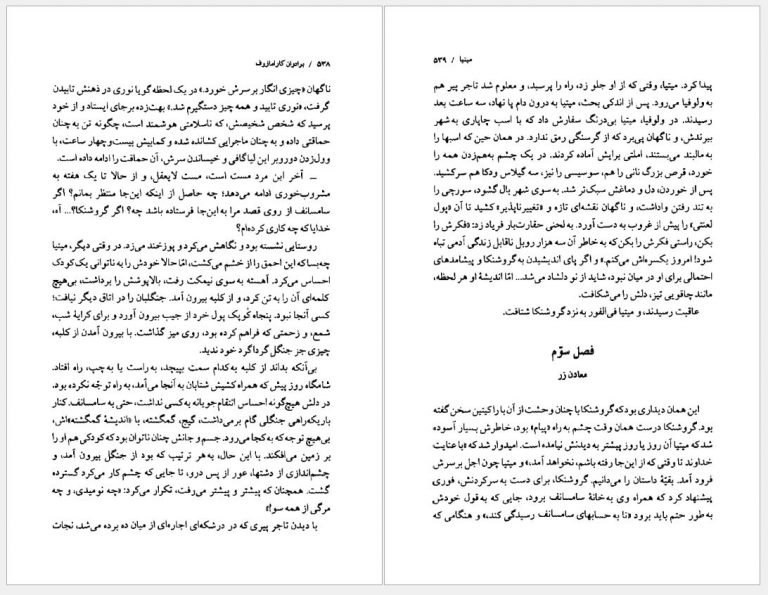 ۵۳۸ / برادران کارامازوف
ناگهان «چیزی انگار بر سرش خورد.» در یک لحظه گویا نوری در ذهنش تابیدن
گرفت، «نوری تابید و همه چیز دستگیرم شد.» بهت‌زده برجای ایستاد و از خود
پرسید که شخص شخیصش، که ناسلامتی هوشمند است، چگونه تن به چنان
حماقتی داده و به چنان ماجرایی کشانده شده و کمابیش بیست‌وچهار ساعت، با
وول‌زدن دوروبر این لیاگافی و خیساندن سرش، آن حماقت را ادامه داده است.
ــ آخر این مرد مست است، مست لایعقل، و از حالا تا یک هفته به
مشروب‌خوری ادامه می‌دهد؛ چه حاصل از اینکه این‌جا منتظر بمانم؟ اگر
سامسانف از روی قصد مرا به این‌جا فرستاده باشد چه؟ اگر گروشنکا؟... آه،
خدایا که چه کاری کرده‌ام؟
روستایی نشسته بود و نگاهش می‌کرد و پوزخند می‌زد. در وقتی دیگر، میتیا
چه‌بسا که این احمق را از خشم می‌کشت، امّا حالا خودش را به ناتوانی یک کودک
احساس می‌کرد. آهسته به سوی نیمکت رفت، بالاپوشش را برداشت، بی‌هیچ
کلمه‌ای آن را به تن کرد، و از کلبه بیرون آمد. جنگلبان را در اتاق دیگر نیافت؛
کسی آنجا نبود. پنجاه کُوپک پول خرد از جیب بیرون آورد و برای کرایهٔ شب،
شمع، و زحمتی که فراهم کرده بود، روی میز گذاشت. با بیرون آمدن از کلبه،
چیزی جز جنگل گرداگرد خود ندید.
بی‌آنکه بداند از کلبه به کدام سمت بپیچد، به راست یا به چپ، راه افتاد.
شامگاه روز پیش که همراه کشیش شتابان به آنجا می‌آمد، به راه توجّه نکرده بود.
در دلش هیچ‌گونه احساس انتقام‌جویانه به کسی نداشت، حتی به سامسانف. کنار
باریکه‌راهی جنگلی گام برمی‌داشت، گیج، گمگشته، با «اندیشهٔ گمگشته»اش،
بی‌هیچ توجه که به کجا می‌رود. جسم و جانش چنان ناتوان بود که کودکی هم او را
بر زمین می‌افکند. با این حال، به هر ترتیب که بود از جنگل بیرون آمد، و
چشم‌اندازی از دشتها، عور از پس درو، تا جایی که چشم کار می‌کرد گسترده
گشت. همچنان که پیشتر و پیشتر می‌رفت، تکرار می‌کرد: «چه نومیدی، و چه
مرگی از همه سو!»
با دیدن تاجر پیری که در درشکه‌ای اجاره‌ای از میان ده برده می‌شد، نجات
میتیا / ۵۳۹
پیدا کرد. میتیا، وقتی که از او جلو زد، راه را پرسید، و معلوم شد تاجر پیر هم
به ولوفیا می‌رود. پس از اندکی بحث، میتیا به درون دام پا نهاد، سه ساعت بعد
رسیدند. در ولوفیا، میتیا بی‌درنگ سفارش داد که با اسب چاپاری به شهر
ببرندش، و ناگهان پی‌برد که از گرسنگی رمق ندارد. در همان حین که اسبها را
به مالبند می‌بستند، املتی برایش آماده کردند. در یک چشم به‌هم‌زدن همه را
خورد، قرص بزرگ نانی را هم، سوسیسی را نیز، سه گیلاس ودکا هم سرکشید.
پس از خوردن، دل و دماغش سبک‌تر شد. به سوی شهر بال گشود، سورچی را
به تند رفتن واداشت، و ناگهان نقشه‌ای تازه و «تغییرناپذیر» کشید تا آن «پول
لعنتی» را پیش از غروب به دست آورد. به لحنی حقارت‌بار فریاد زد: «فکرش را
بکن، راستی فکرش را بکن که به خاطر آن سه هزار روبل ناقابل زندگی آدمی تباه
شود! امروز یکسره‌اش می‌کنم.» و اگر پای اندیشیدن به گروشنکا و پیشامدهای
احتمالی برای او در میان نبود، شاید از نو دلشاد می‌شد... امّا اندیشهٔ او هر لحظه،
مانند چاقویی تیز، دلش را می‌شکافت.
عاقبت رسیدند، و میتیا فی‌الفور به نزد گروشنکا شتافت.
فصل سوّم
معادن زر
این همان دیداری بود که گروشنکا با چنان وحشت از آن با راکیتین سخن گفته
بود. گروشنکا درست همان وقت چشم به راه «پیام» بود، خاطرش بسیار آسوده
شد که میتیا آن روز یا روز پیشتر به دیدنش نیامده است. امیدوار شد که «با عنایت
خداوند تا وقتی که از این‌جا رفته باشم، نخواهد آمد،» و میتیا چون اجل بر سرش
فرود آمد. بقیّهٔ داستان را می‌دانیم. گروشنکا، برای دست به سر کردنش، فوری
پیشنهاد کرد که همراه وی به خانهٔ سامسانف برود، جایی که به قول خودش
به طور حتم باید برود «تا به حسابهای سامسانف رسیدگی کند،» و هنگامی که